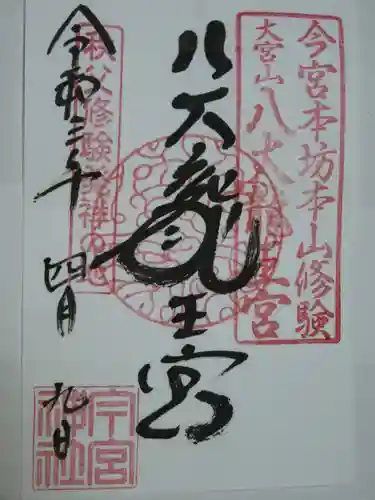 今宮本坊本山修験
大宮山八大龍王宮
八大龍王宮
秩父修験発祥の
令和三年四月九日
今宮神社